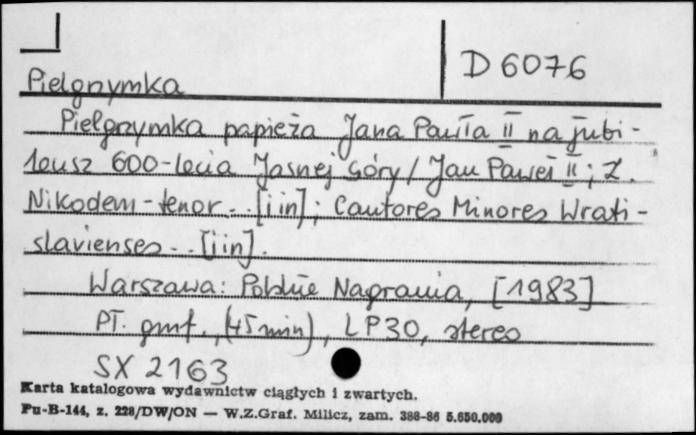 D 6076
Pielgrzymka
Pielgrzymka papieża Jana Pawła II na jubi-
leusz 600-lecia Jasnej Góry / Jan Paweł II ; Z.
Nikodem - tenor .. [i in] ; Cantores Minores Wrati-
slavienses .. [i in].
Warszawa : Polskie Nagrania, [1983]
PŁ. gmf., (45 min), LP 30, stereo
SX 2163
Karta katalogowa wydawnictw ciągłych i zwartych.
Pu-B-144, z. 228/DW/ON — W.Z.Graf. Milicz, zam. 388-86 5.650.000